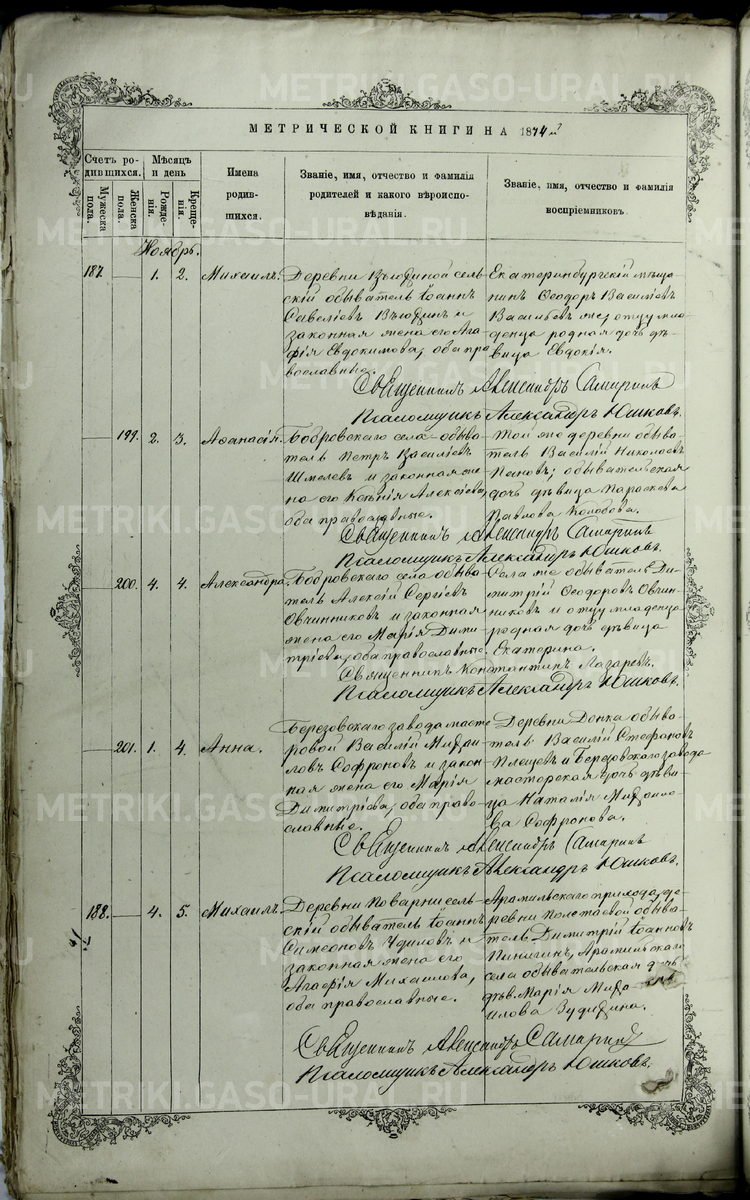 МЕТРИЧЕСКОЙ КНИГИ НА 1874й
Счетъ родившихся.
Мужеска пола.
Женска пола.
Мѣсяцъ и день
Рожденія.
Крещенія.
Имена родившихся.
Званіе, имя, отчество и фамилія
родителей и какого вѣроиспо-
вѣданія.
Званіе, имя, отчество и фамилія
воспріемниковъ.
Ноябрь.
187. 1. 2. Михаилъ.
Деревни сель
скій обыватель Іоаннъ
Савеліевъ и
законная жена его Ага
фія Евдокимова, оба пра
вославные.
Екатеринбургскій мѣща
нинъ Ѳеодоръ Василіевъ
и отцу мла
денца родная дочь дѣ
вица Евдокія.
Священникъ Александръ Самаринъ
Псаломщикъ Александръ Юшковъ.
199. 2. 3. Аѳанасія.
Бобровскаго села обыва
тель Петръ Василіевъ
Шмелевъ и законная же
на его Ксенія Алексіева,
оба православные.
Той же деревни обыва
тель Василій Николаевъ
обывательская
дочь дѣвица Параскева
Павлова Колобова.
Священникъ Александръ Самаринъ
Псаломщикъ Александръ Юшковъ.
200. 4. 4. Александра.
Бобровскаго села обыва
тель Алексій Сергіевъ
Овчинниковъ и законная
жена его Марія Дими
тріева, оба православные.
Села же обыватель Ди
митрій Ѳеодоровъ Овчин
никовъ и отцу младенца
родная дочь дѣвица
Екатерина.
Священникъ Константинъ Лазаревъ.
Псаломщикъ Александръ Юшковъ.
201. 1. 4. Анна.
Березовскаго завода масте
ровой Василій Михаи
ловъ Софроновъ и закон
ная жена его Марія
Димитріева, оба право
славные.
Деревни обыва
тель Василій Стефановъ
Плещевъ и Березовскаго завода
мастерская дочь дѣви
ца Наталія Михаило
ва Софронова.
Священникъ Александръ Самаринъ
Псаломщикъ Александръ Юшковъ.
188. 4. 5. Михаилъ.
Деревни Поварни сель
скій обыватель Іоаннъ
Симеоновъ и
законная жена его
Агафія Михаилова,
оба православные.
Арамильскаго прихода, де
ревни Полетаевой обыва
тель Димитрій Іоанновъ
Пинигинъ, Арамильскаго
села обывательская дочь
дѣв. Марія Миха
илова
Священникъ Александръ Самаринъ
Псаломщикъ Александръ Юшковъ.
METRIKI.GASO-URAL.RU